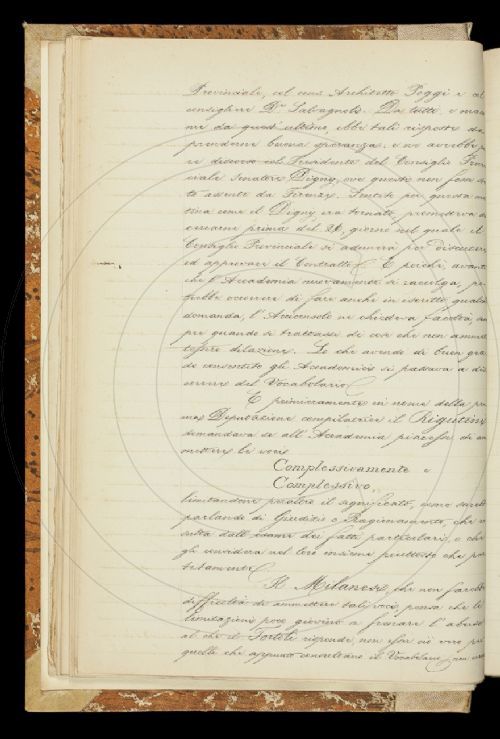 Provinciale, col cons. Architetto Poggi e col
consigliere Dr. Salvagnoli. Da tutti, e mas
me da quest' ultimo, ebbe tali risposte da
prenderne buona speranza; e ne avrebbe
discorso col Presidente del Consiglio Prov
ciale Senatore Digny, ove questo non fosse sta
to assente da Firenze. Sentito poi questa mat
tina come il Digny era tornato, prometteva d
esserne prima del 28, giorno nel quale il
Consiglio Provinciale si adunerà per discutere
ed approvare il Contratto. E perchè, avanti
che l'Accademia nuovamente si raccolga, po
trebbe occorrere di fare anche in iscritto qualche
domanda, l'Arciconsolo ne chiedeva facoltà, sem
pre quando si trattasse di cose che non ammet
tessero dilazione. Lo che avendo di buon gra
do consentito gli Accademici si passava a dis
correre del Vocabolario.
E primieramente in nome della pri
ma Deputazione compilatrice il Rigutini
domandava se all'Accademia piacesse di am
mettere le voci
Complessivamente e
Complessivo,
limitandone peraltro il significato, come sarebbe
parlando di Giudizio o Ragionamento, che ri
sulta dall'esame dei fatti particolari, o che
gli considera nel loro insieme piuttosto che par
titamente.
Il Milanesi, che non farebbe
difficoltà di ammettere tali voci, pensa che le
limitazioni poco giovino a frenare l'abuso
al che il Tortoli risponde non esser ciò vero per
quelli che appunto consultano il Vocabolario